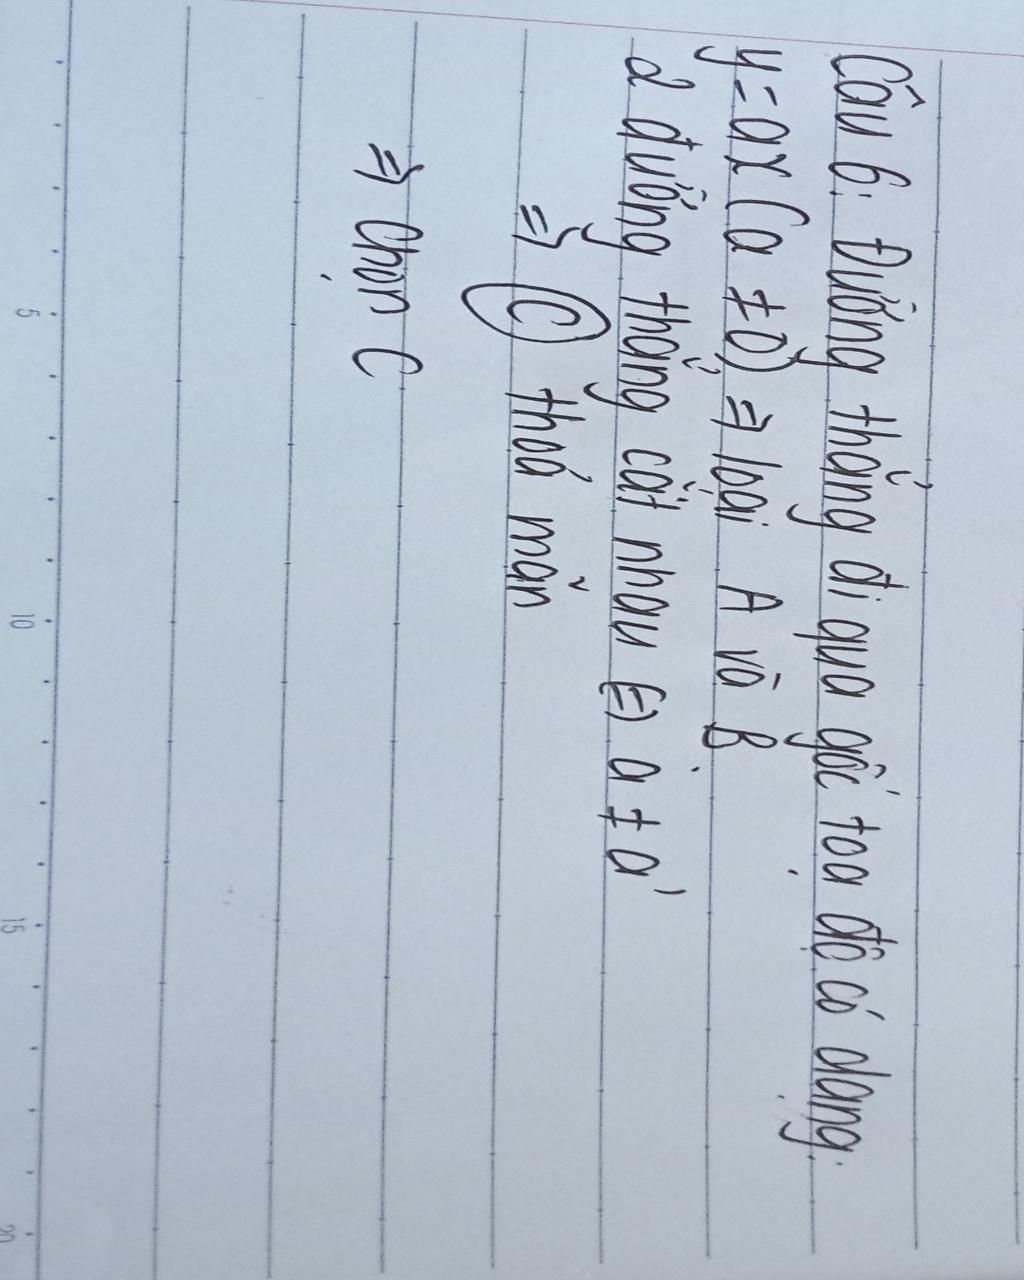 Câu 6: Đường thẳng đi qua gốc toạ độ có dạng.
y = ax (a ≠ 0) => loại A và B
2 đường thẳng cắt nhau (=) a ≠ a'
=> C thoả mãn
=> Chọn C
5
10
15
20